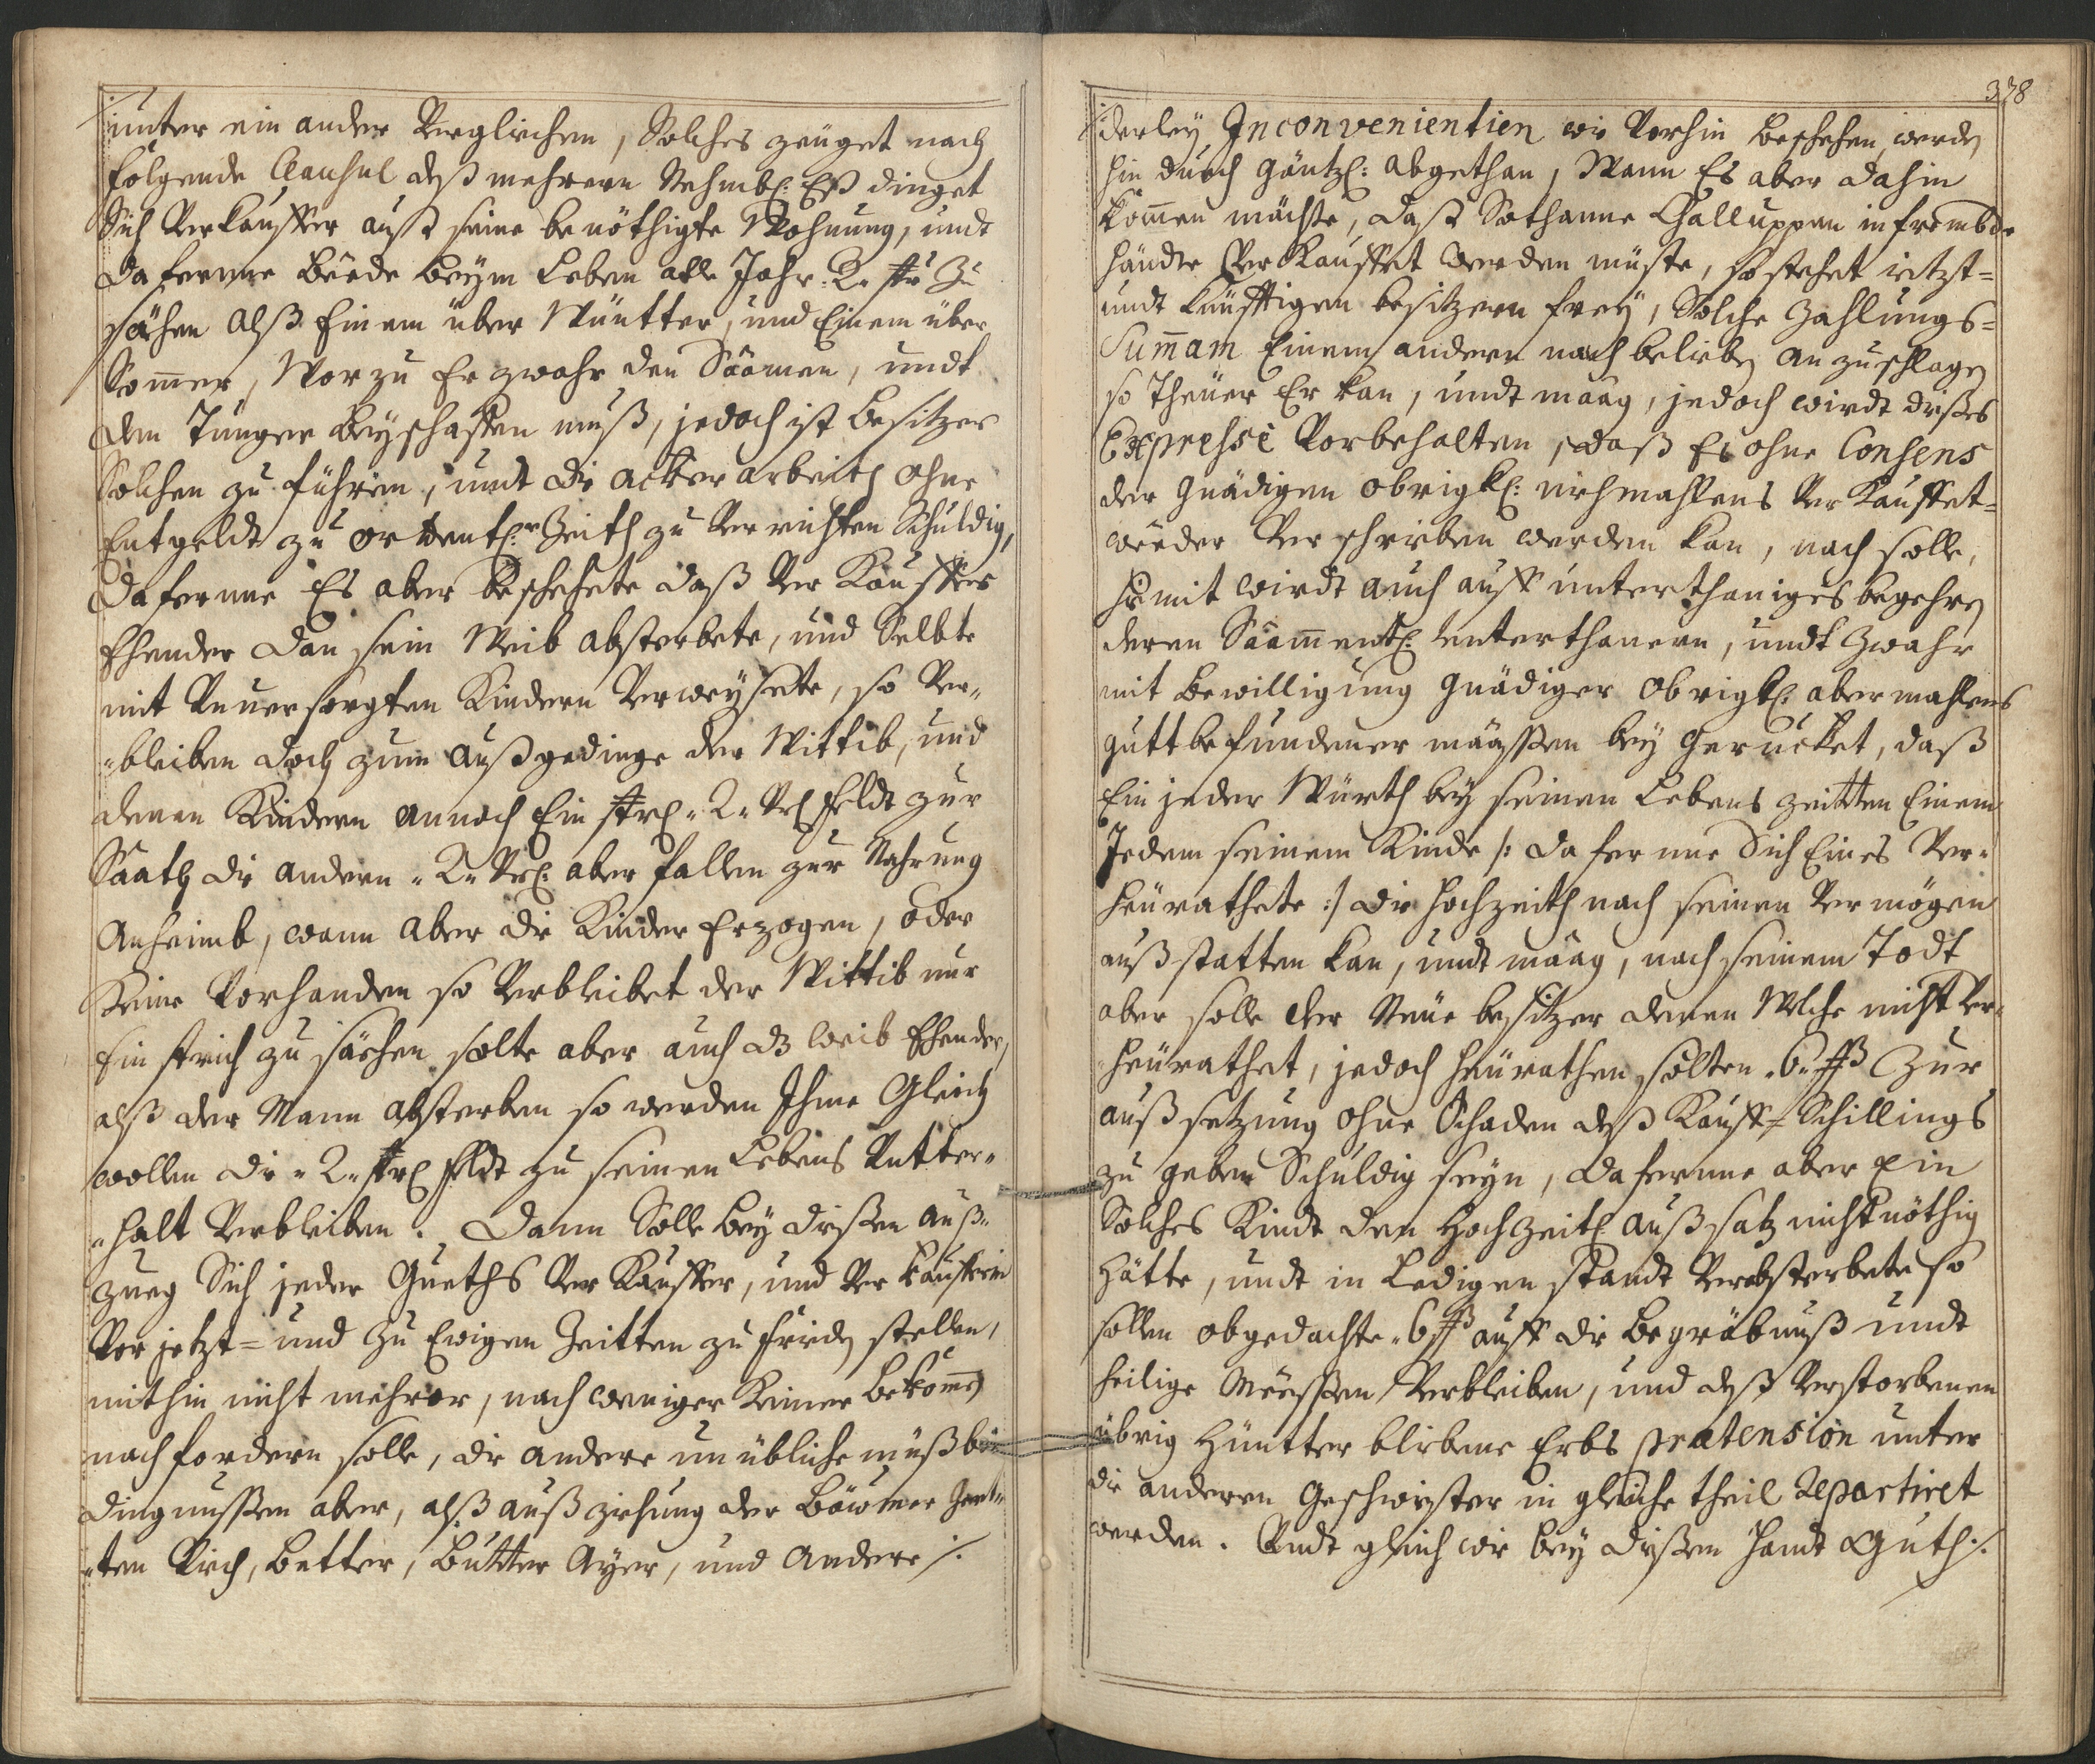 unter ein ander Verglichen, Solches zeüget nach
folgende Clausul deß mehrern Nehmbl: Eß dinget
Sich Verkauffer auß seine benöthigte Wohnung, undt
daferrne Beede beym Leben alle Jahr 2. str: Zu
sähen alß Einem über Wüntter, und Einem über
Som̄er, Worzu Er zwahr den Saamen, undt
den Tunger beyschaffen muß, jedoch ist Besitzer
Solchen zu führen, undt die acker arbeith ohne
Entgeldt zu ordentl:r Zeith zu Verrichten Schuldig,
daferrne Es aber beschehete daß Ver Kauffer
Ehender dan sein Weib absterbete, und Selbte
mit Vnversorgten Kindern Verweysete, so Ver-
-bleiben doch zum Außgedinge der Wittib, und
denen Kindern annoch Ein strl „2„ Vrl Feldt zur
Saath die andern „2„ Vrl: aber fallen zur Nahrung
Anheimb, wann aber die Kinder Erzogen, oder
Keine Vorhanden so Verbleibet der Wittib nur
Ein strich zu säehen solte aber auch dz Weib Ehender,
alß der Mann absterben so werden Ihme Gleich
wollen die „2„ strl Feldt zu seinen Lebens Vntter-
-halt Verbleiben. Dann Solle bey dießen auß-
zueg Sich jeder Gueths Ver Kauffer, und Ver kaufferin
Vor jetzt= und zu Ewigen Zeitten zu frieden stellen,
mithin nicht mehrer, noch weniger Keiner bekom̄en
noch fordern solle, die andere unübliche müßbe
dingnussen aber, alß außziehung der Bäwmer
-ten Viech, Better, Butter Ayer, und Andere ./.
378
derley Inconvenientien wie Vorhin beschehen, werden
hin durch gäntzl: abgethan, Wann Es aber dahin
kom̄en möchte, daß Sothanne Challuppen in frembde
händte Ver Kauffet werden müste, so stehet ietzt=
undt künfftigen besitzern frey, Solche Zahlungs=
Sum̄am Einem andern nach belieben anzuschlagen
so Theüer Er kan, undt maag, jedoch wirdt dießes
Expresse Vorbehalten, daß Es ohne Consens
der Gnädigen obrigkl: niehmahlens Ver Kauffet=
weeder Ver schrieben werden kan, noch solle,
Hiemit wirdt auch auff unterthaniges begehren
deren Saam̄entl: unterthanern, undt Zwahr
mit Bewilligung Gnädiger Obrigkl: abermahlens
gutt befundener määssen bey gerucket, daß
Ein jeder Würth bey seinen Lebens zeitten Einem
Jedem seinem Kinde /: daferrne Sich Eines Ver-
heürathete :/ die Hochzeith nach seinen Vermögen
außstatten kan, undt maag, nach seinem Todt
aber solle der Neüe besitzer denen Welche nicht Ver-
heürathet, jedoch heürathen solten „6„ ß Zur
außsetzung ohne Schaden deß Kauff=Schillings
zu geben Schuldig seyn, daferrne aber Ein
Solches Kindt den Hochzeitl: außsatz nicht nöthig
Hätte, undt in Ledigen standt Verabsterbete so
sollen obgedachte „6 ß auff die Begräbnuß undt
heilige Meessen Verbleiben, und deß Verstorbenen
übrig Hüntter bliebene Erbs prætension unter
die anderen Geschwister in gleiche theil Repartiret
werden. Vndt gleich wie bey dießem Handt Guth ./.